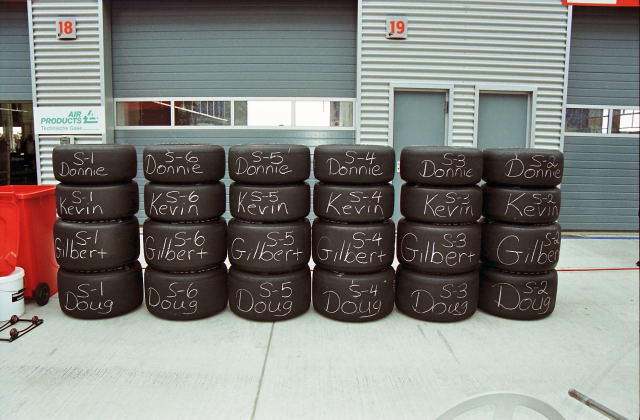 18
19
AIR
PRODUCTS
Technische Gase
S-1
Donnie
S-6
Donnie
S-5
Donnie
S-4
Donnie
S-3
Donnie
S-2
Donnie
S-1
Kevin
S-6
Kevin
S-5
Kevin
S-4
Kevin
S-3
Kevin
S-2
Kevin
S-1
Gilbert
S-6
Gilbert
S-5
Gilbert
S-4
Gilbert
S-3
Gilbert
S-2
Gilbert
S-1
Doug
S-6
Doug
S-5
Doug
S-4
Doug
S-3
Doug
S-2
Doug